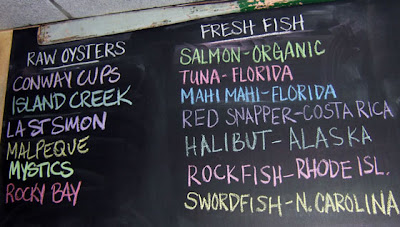 RAW OYSTERS
CONWAY CUPS
ISLAND CREEK
LA ST SIMON
MALPEQUE
MYSTICS
ROCKY BAY
FRESH FISH
SALMON-ORGANIC
TUNA-FLORIDA
MAHI MAHI-FLORIDA
RED SNAPPER-COSTA RICA
HALIBUT-ALASKA
ROCKFISH-RHODE ISL.
SWORDFISH-N. CAROLINA